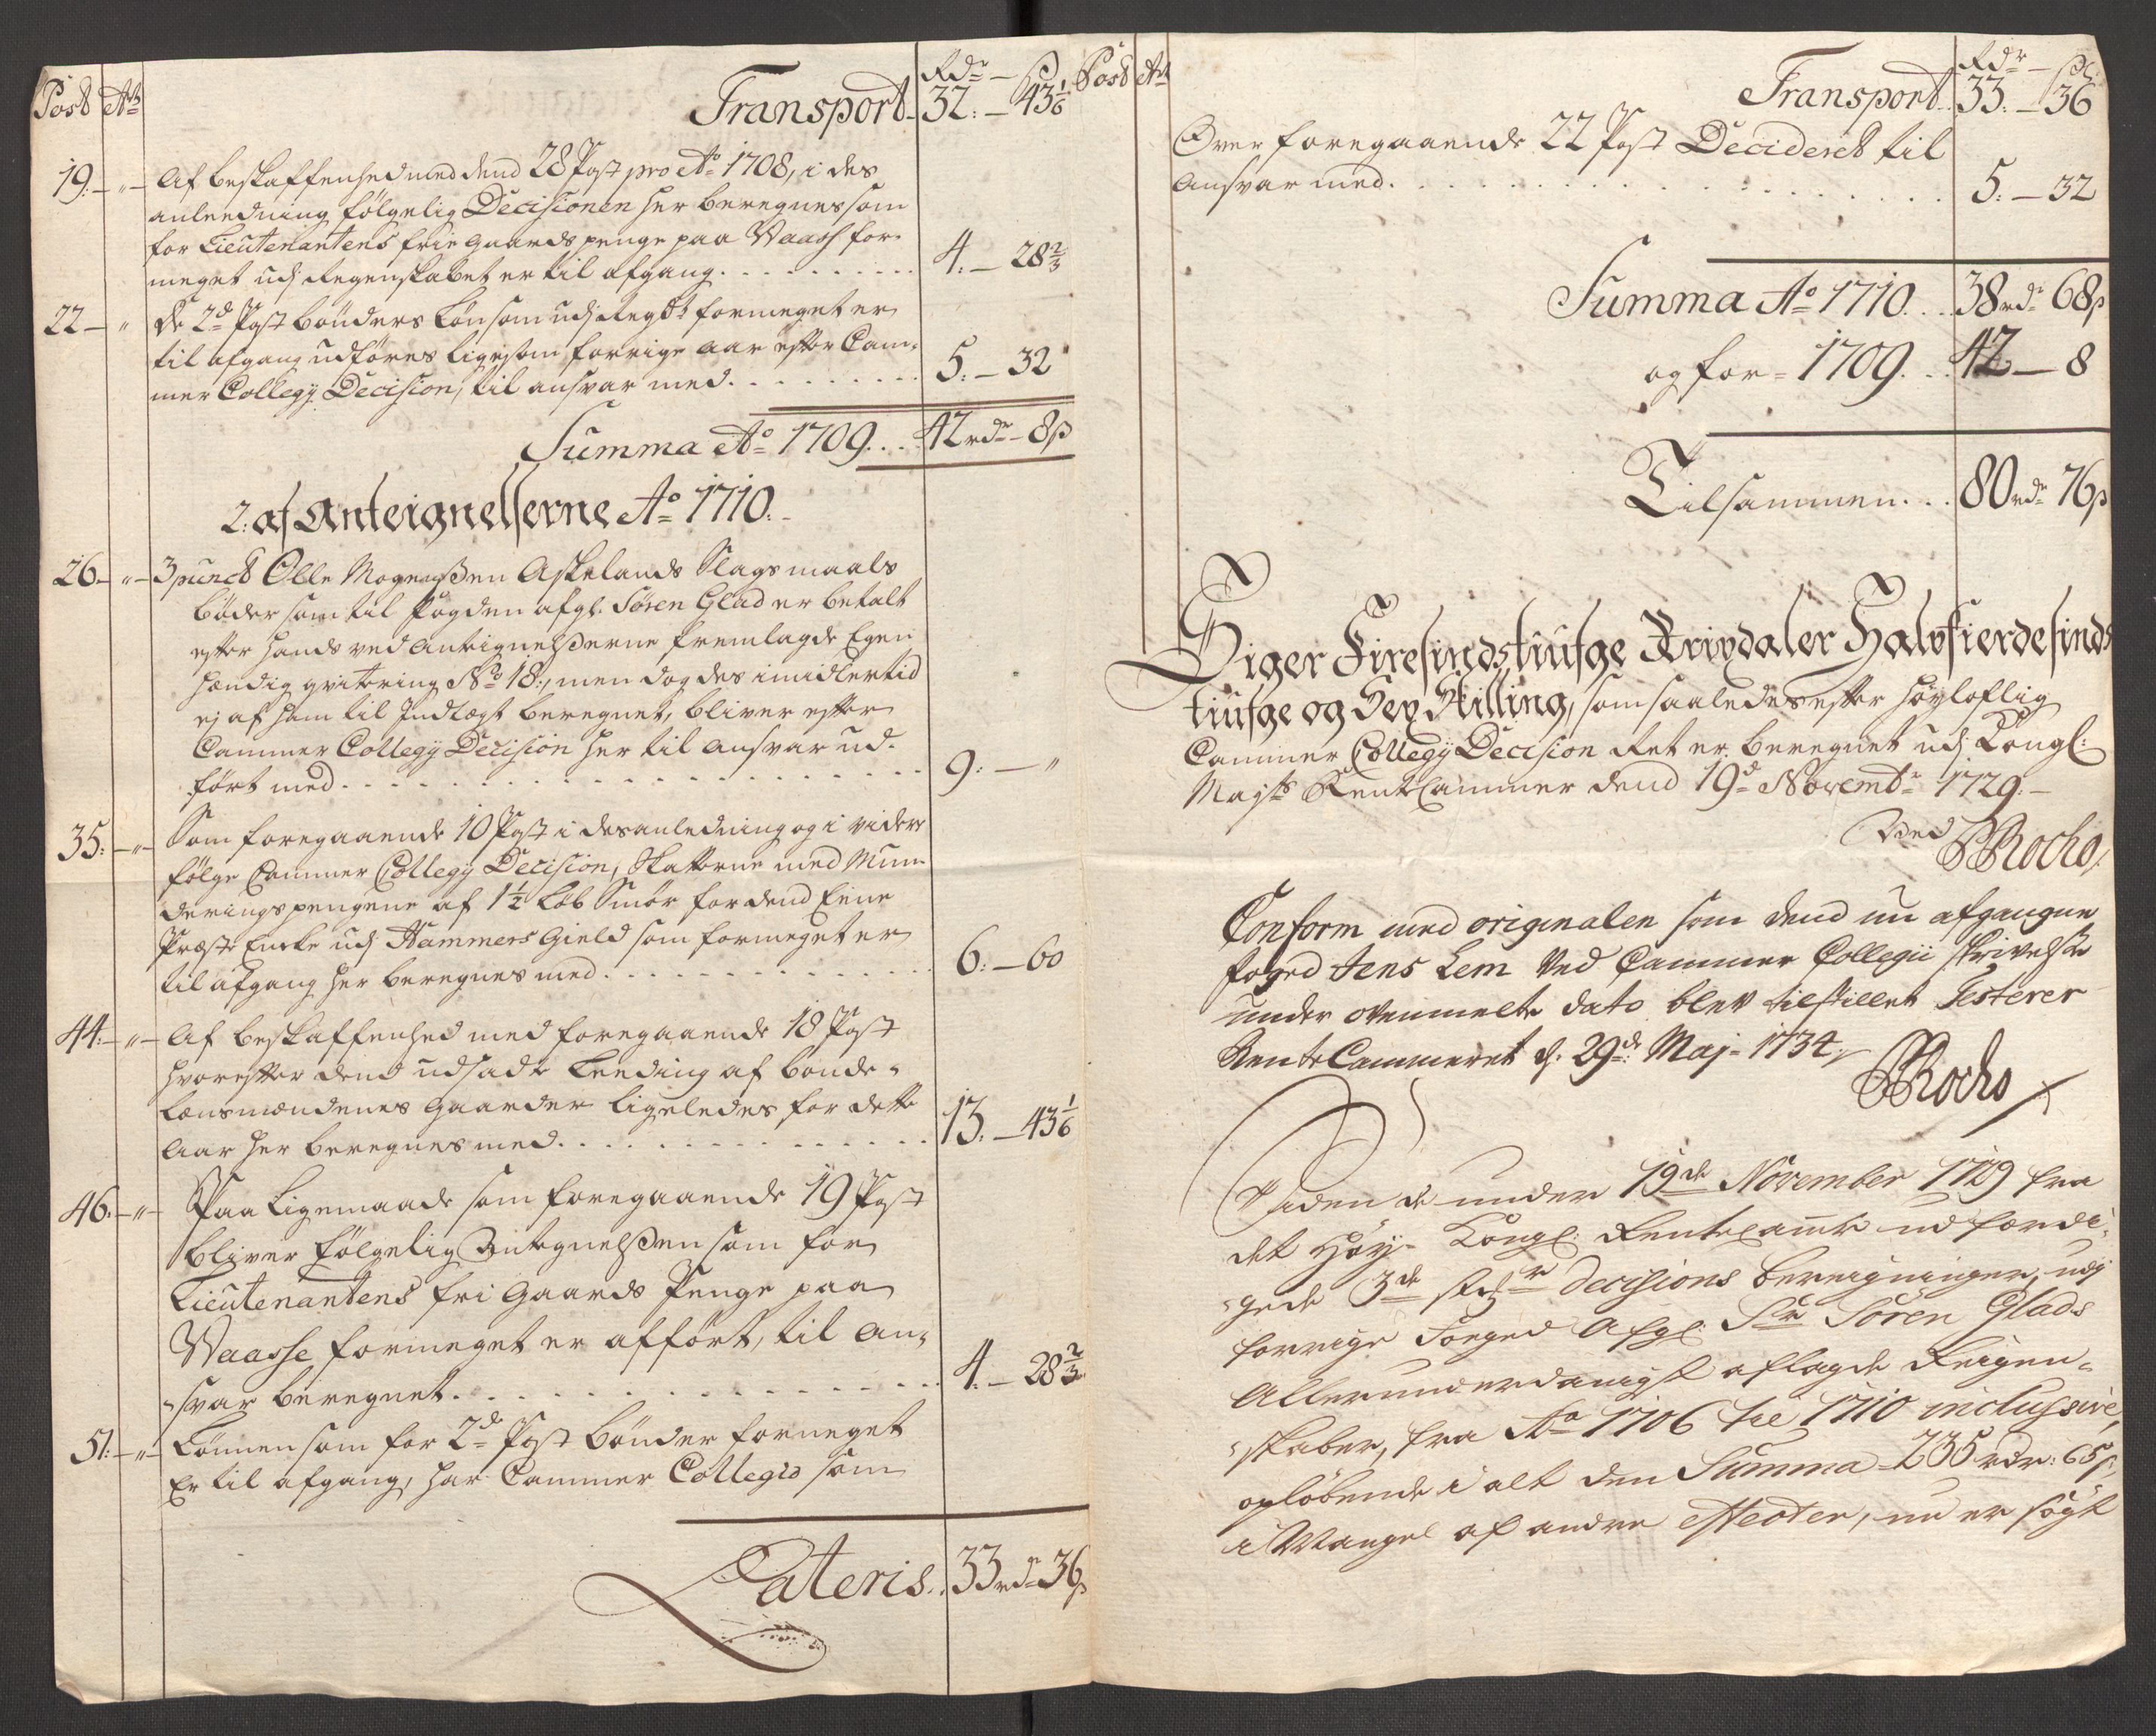 Post Art Rdr – ß
Transport 32: – 43 1/6
19:– "– Af beskaffenhed med dend 28 Post pro Ao 1708, i des
anleedning følgelig Decisionen her beregnes som
for Lieutenantens frie gaards penge paa Waass for
meget udj Regenskabet er til afgang . . . 4: – 28 2/3
22 – " De 2de Post bønders Løn som udj Regskt formeget er
til afgang udføres ligesom forrige aar efter Cam-
mer Collegy Decision, til ansvar med . . . 5: – 32
Summa Ao 1709 . . . 42 rdr – 8 ß
2: af Anteignelserne Ao 1710.
26:– "– 3 punct Olle Mogenßen Askelands Slagsmaals
bøder som til fogden afgl. Søren Glad er betalt
efter hands ved Anteignelßerne fremlagde Egen
hændig qvitering No 18:, men dog des imidlertid
ej af ham til Indtægt beregnet, bliver efter
Cammer Collegij Decision her til ansvar ud-
ført med . . . 9: – "
35: –"– Som foregaaende 10 Post i des anledning og i videre
følge Cammer Collegy Decision, Skatterne med Mun-
deringspengene af 1½ Løb Smør for dend Eene
Præste Encke udj Hammers Gield som formeget er
til afgang her beregnes med . . . 6: – 60
44: –"– Af beskaffenhed med foregaaende 18 Post
hvorefter dend udsadte Leeding af bonde-
Lænsmændenes gaarder ligeledes for dette
aar her beregnes med . . . 13. – 43 1/6
46:–"– Paa ligemaade som foregaaende 19 Post
bliver følgelig Antegnelßen som for
Lieutenantens fri gaards Penge paa
Waasse formeget er afført, til an-
svar beregnet . . . 4. – 28 2/3
51: –"– Lønnen som for 2de Post bønder formeget
Er til afgang, har Cammer Collegio som
Lateris . . 33 rdr 36 ß
Post Art Rdr – ß
Transport 33: – 36
Over foregaaende 22 Post Decideret til
Ansvar med . . . 5: – 32
Summa Ao 1710 . . . 38 rdr 68 ß
og for = 1709 . . . 42 – 8
Tilsammen . . . 80 rdr 76 ß
Siger Firesindstiufge Rixdaler Halvfierdesinds
tiufge og Sex Skilling, som saaledes efter høyloflig
Cammer Collegij Decision Ret er beregnet udj Kongl:
Majts RenteCammer dend 19de Novembr 1729. –
Ved
Rocho
Conform med originalen som dend nu afgangne
foged Jens Lem ved Cammer Collegii skrivelse
under ovenmelte dato blev tilstillet Testerer
Rente Cammeret d. 29de Maj – 1734
Rocho
Siden de under 19de November 1729 fra
det Høy- Kongl: Rentecamer udfærdi-
gede 3de Decisions beregninger, udj
forrige Foged Afgl: Sr Søren Glads
Allerunderdanigst aflagde Reigen-
skaber, fra Ao 1706 til 1710 inclussive,
opløbende i alt den Summa – 235 rdr: 65 ß
i Mangel af andre effecter, nu er søgt